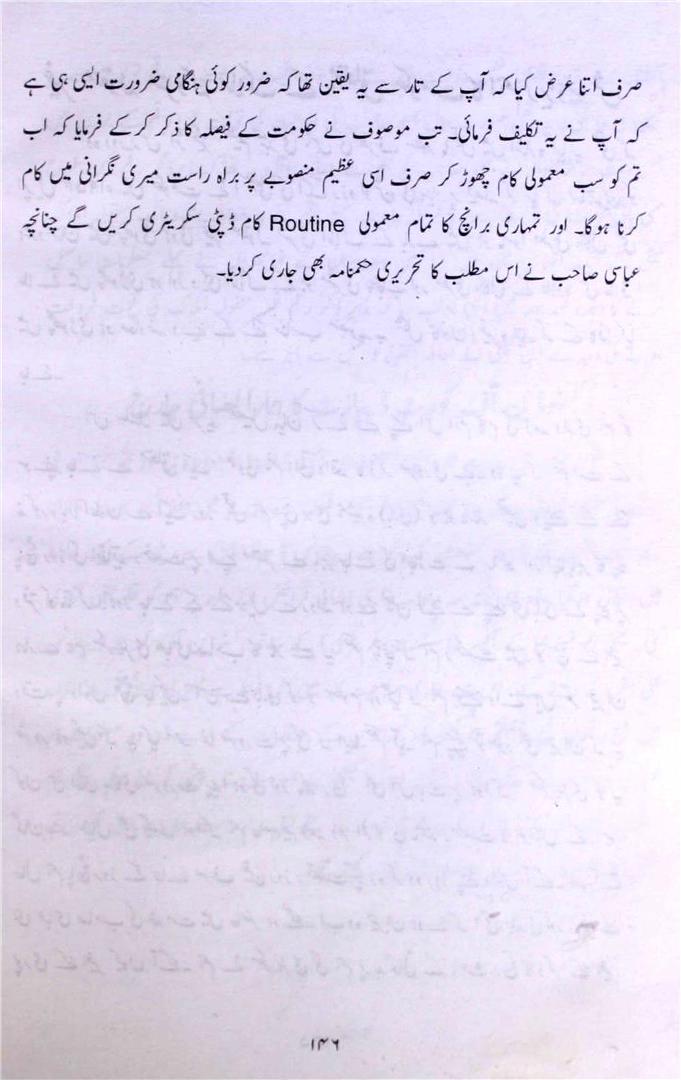 صرف اتنا عرض کیا کہ آپ کے تار سے یہ یقین تھا کہ ضرور کوئی ہنگامی ضرورت ایسی ہی ہے
کہ آپ نے یہ تکلیف فرمائی۔ تب موصوف نے حکومت کے فیصلہ کا ذکر کر کے فرمایا کہ اب
تم کو سب معمولی کام چھوڑ کر صرف اسی عظیم منصوبے پر براہ راست میری نگرانی میں کام
کرنا ہوگا۔ اور تمہاری برانچ کا تمام معمولی Routine کام ڈپٹی سکریٹری کریں گے چنانچہ
عباسی صاحب نے اس مطلب کا تحریری حکمنامہ بھی جاری کردیا۔
۱۴۶